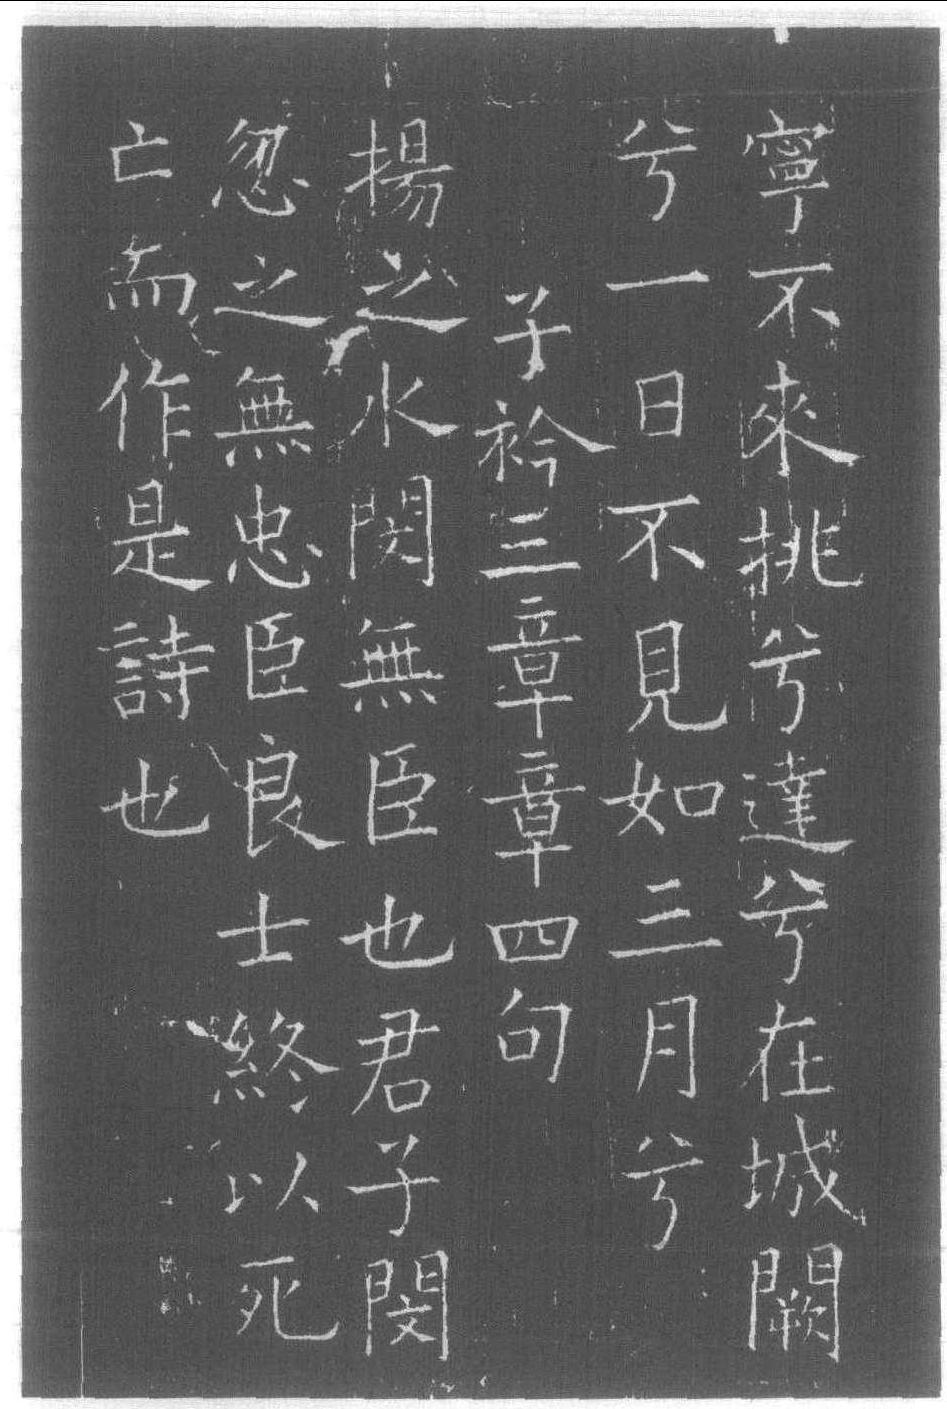 寧不來挑兮達兮在城闕
兮一日不見如三月兮
子衿三章章四句
揚之水閔無臣也君子閔
忽之無忠臣良士終以死
亡而作是詩也